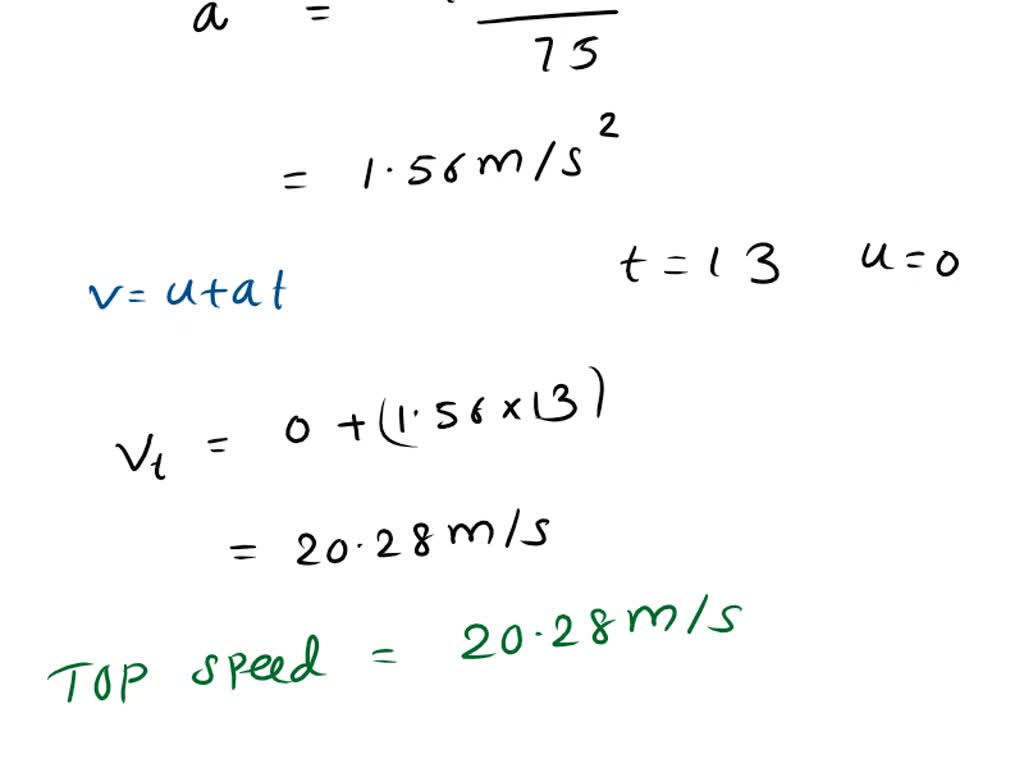 a =
75
= 1.56 m/s²
t = 13 u = 0
v = u + at
Vt = 0 + (1.56 × 13)
= 20.28 m/s
TOP speed = 20.28 m/s